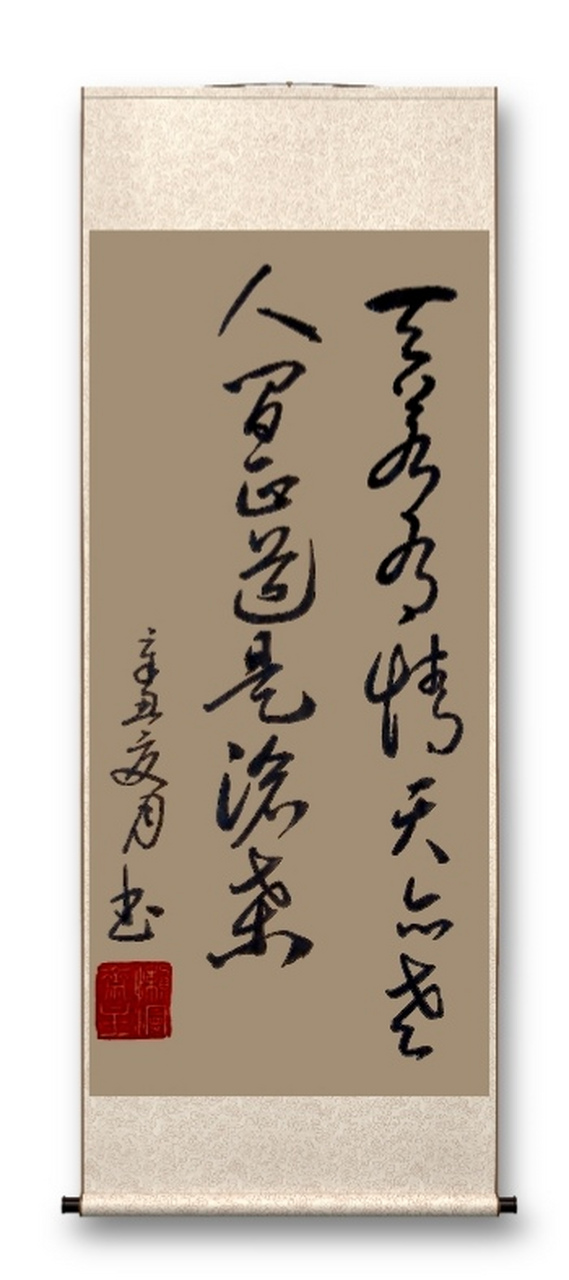 天若有情天亦老
人間正道是滄桑
辛丑夏月书